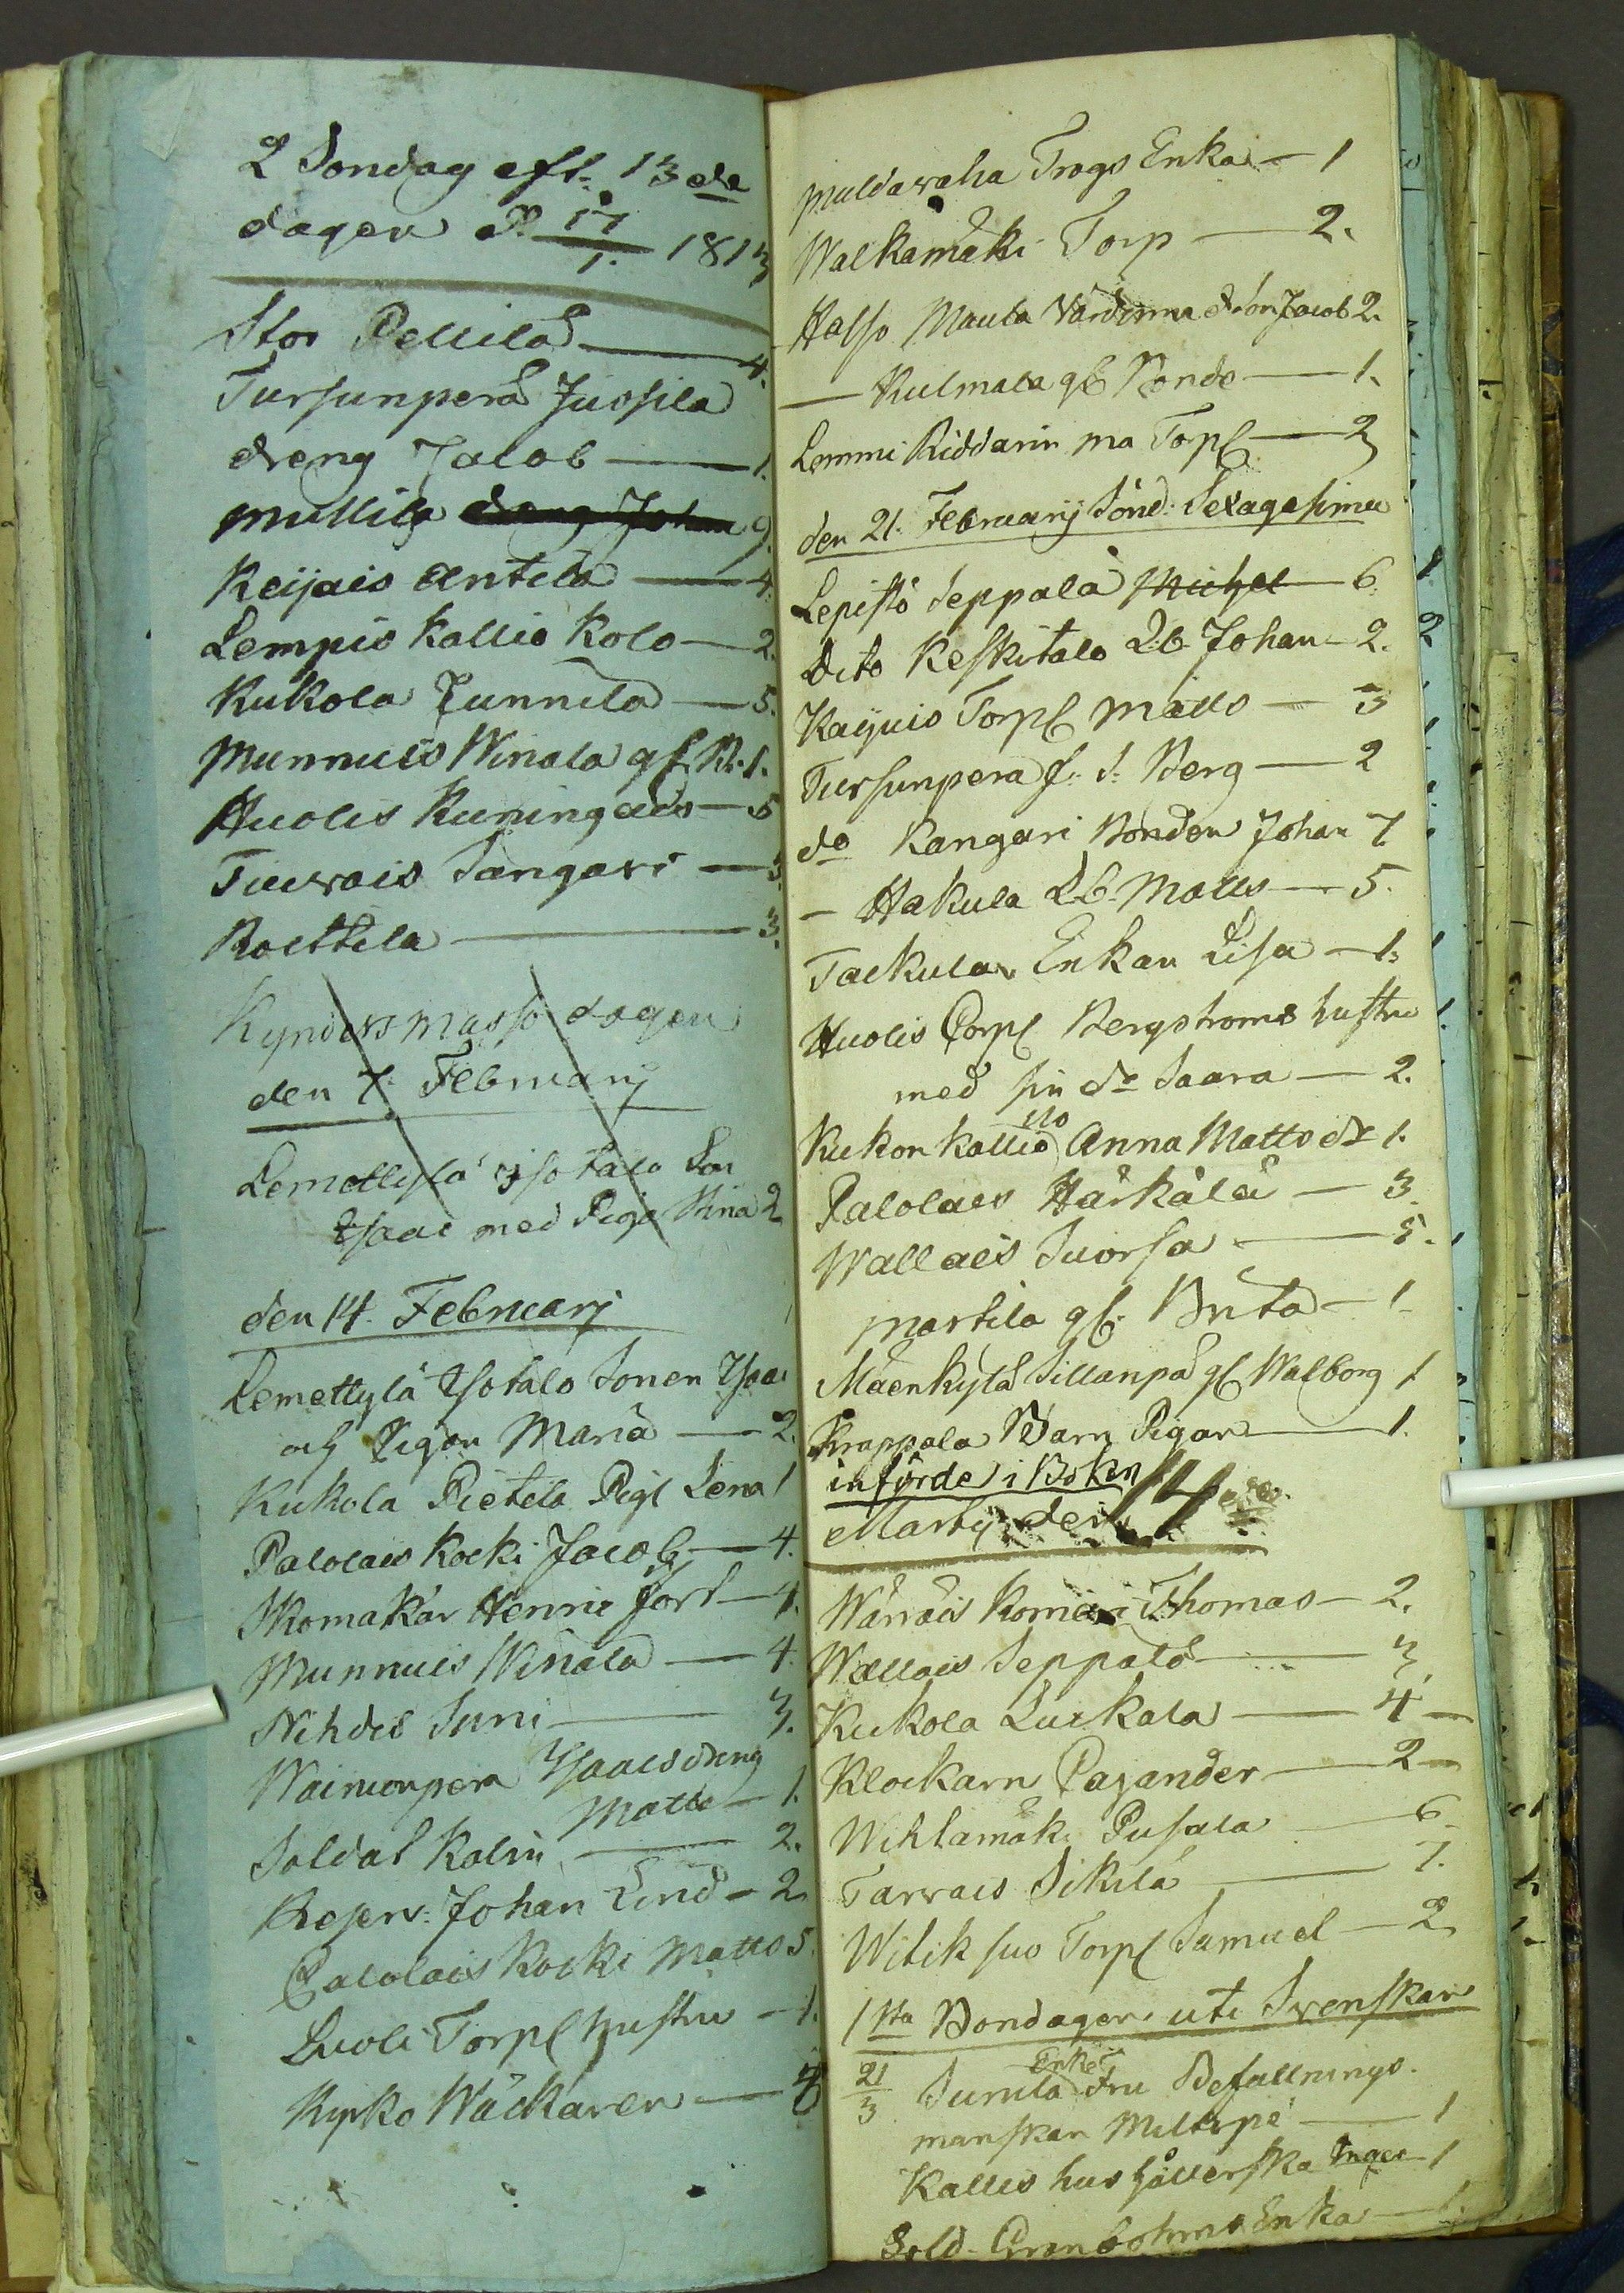 2 Sondag eft. 13 de
dagen d. 17/1. 1813
Stor Pellilä — 4.
Tursunperä Jussila
dreng Jacob — 1.
Mullila dreng Johan 9.
Keijais Antila — 4.
Lempis Kallio Kolo — 2.
Kukola Junnila — 5.
Munnuis Winala gl. B. 1.
Huolis Kuningas — 5
Tuurais Sangari — 3.
Roettila — 3.
Kyndersmasso dagen
den 7. Februarij
Lemettylä Isotalo Son
Isaac med Piga Stina 2
den 14. Februarij
Lemettylä Isotalo Sonen Isaac
och Pigan Maria — 2.
Kukola Pietila Pig. Lena 1
Palolais Kocki Jacob — 4.
Skomakar Henric Fort — 4.
Munnuis Winala — 4.
Nihdis Suni — 3.
Wainionpera Isaacs dreng
Matts — 1.
Soldat Kalin — 2.
Reserv. Johan Lind — 2
Palolais Kocki Matts 5.
Luoli Torp. hustru — 1.
Kyrko Wäckaren — 4
Muldawaha Trogs Enka — 1
Walkamäki Torp — 2.
Halso Maula Värdinna & Son Jacob 2.
— Kulmala gl. Bonde — 1.
Lemmi Riddarin ma Torp. — 2
den 21. Februarij Sönd: Sexagesima
Lepistö Seppälä Michel — 6.
Dito Keskitalo Db. Johan — 2.
Kayuis Torp. Matts — 3
Tursunpera f. d. Berg — 2
do Kangari Bonden Johan 7
— Hakula Db. Matts — 5.
Tackulan Enkan Lisa — 1.
Huolis Corp. Bergstroms hustru
med sin dr Saara — 2.
Kukon Kallio sto Anna Matts dr 1.
Palolais Härkälä — 3.
Wallais Suorsa — 5.
Martila gl. Brita — 1
Mäenkylä Sillanpä gl. Walborg 1
Knappala Barn Pigan — 1.
införde i Boken
Martij den 14de
Wänäis Komeri Thomas — 2.
Wallais Seppälä — 3.
Kukola Luckala — 4 —
Klockarn Pajander — 2 —
Wihlamäki Pusala — 6
Tarvais Sikilä — 7.
Witiksuo Torp. Samuel — 2
1sta Bondagen uti Svenskan
21/3 Surula Enke Fru Befallnings-
manskan Miltopé — 1
Kallis hushållerska Inger — 1
Sold. Granbohms Enka — 1.